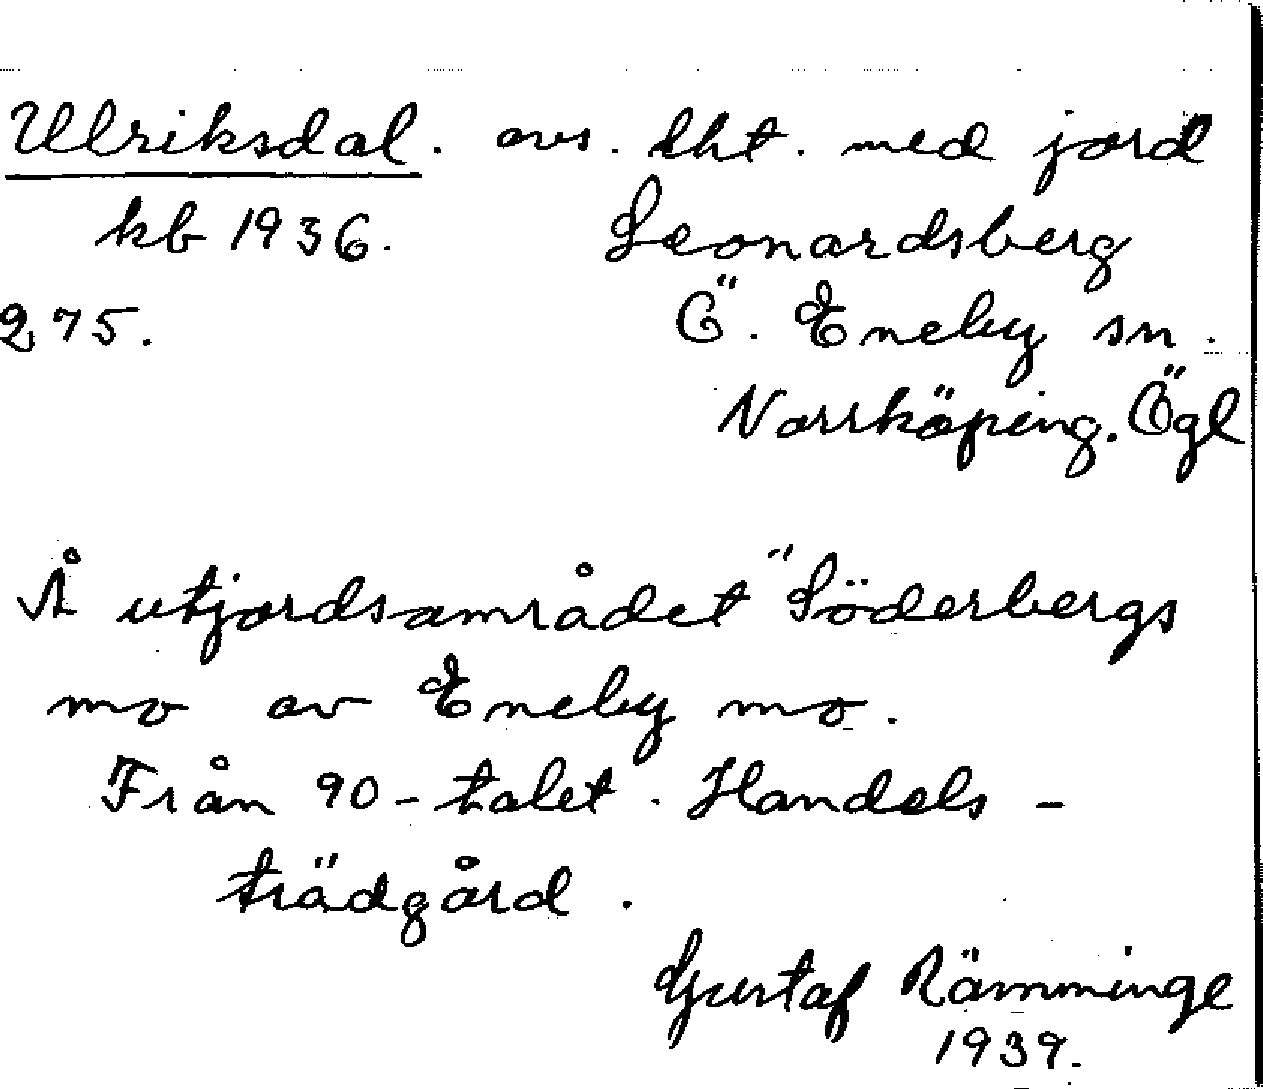 Ulriksdal. avs. lht. med jord
kb 1936. Leonardsberg
275. Ö. Eneby sn.
Norrköping. Ögl
Å utjordsområdet "Söderbergs
mo av Eneby mo.
Från 90-talet. Handels-
trädgård.
Gustaf Rämminge
1939.